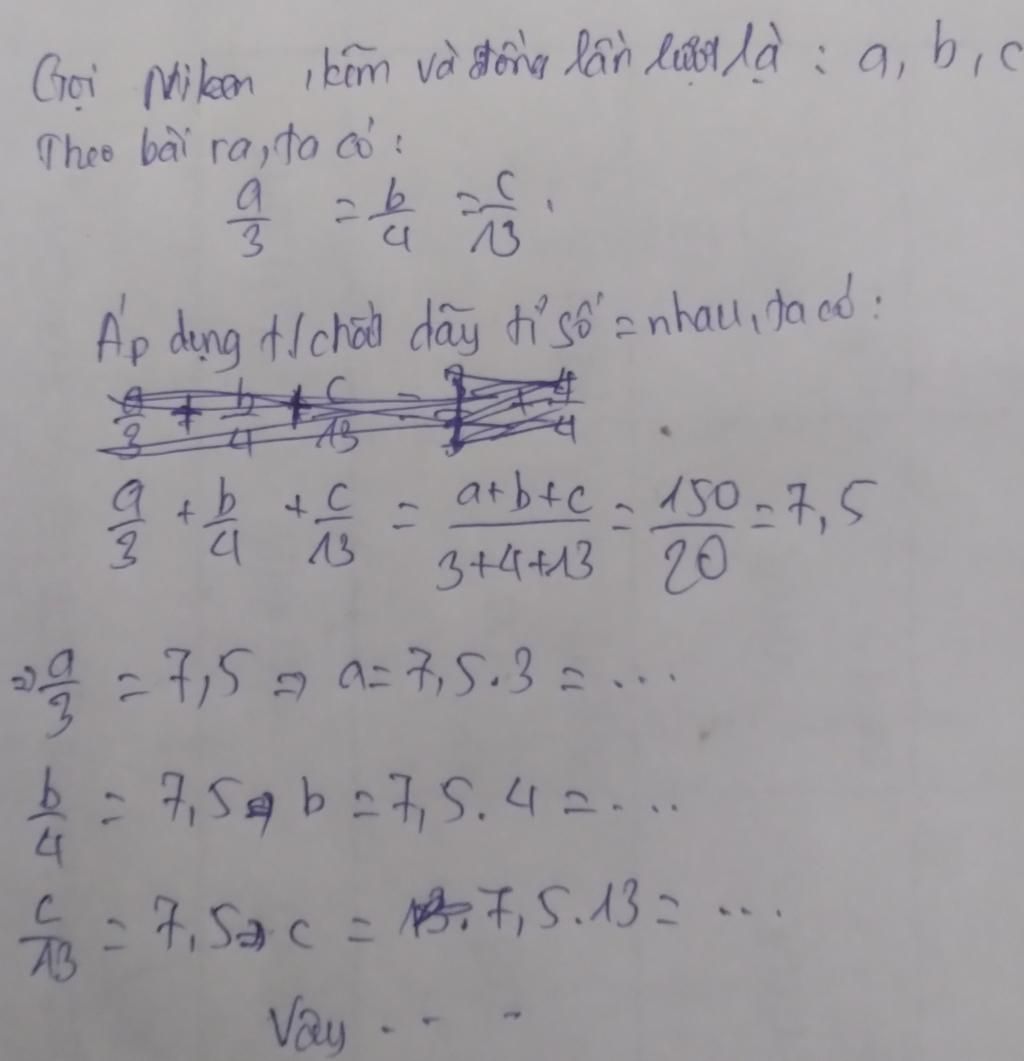 Gọi Niken, kẽm và đồng lần lượt là : a, b, c
Theo bài ra, ta có :
a/3 = b/4 = c/13 .
Áp dụng t/chất dãy tỉ số = nhau, ta có :
a/3 + b/4 + c/13 = (a+b+c)/(3+4+13) = 150/20 = 7,5
⇒ a/3 = 7,5 ⇒ a = 7,5.3 = ...
b/4 = 7,5 ⇒ b = 7,5.4 = ...
c/13 = 7,5 ⇒ c = 7,5.13 = ...
Vậy . . .